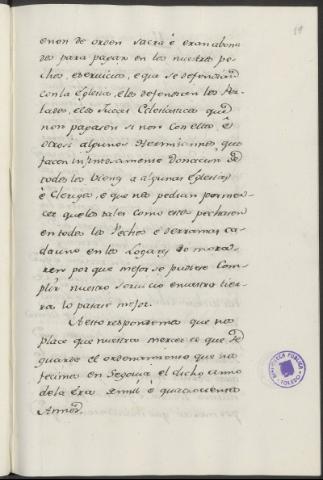 19
enon de orden sacra è eran abona
dos para pagar en los nuestros pe-
chos, e servicios, e que se defendian
con la Eglesia, e los defendian los Per-
lados, e los Jueces Eclesiasticos que
non pagasen si non con ellos ê
otrosi algunos Hermitannos que
facen infintosamente donacion de
todos los bienes a algunas Eglesias
è Clerigos, e que nos pedian por mer-
ced que los tales como estos pechasen
en todos los Pechos e derramas ca-
da uno en los Logares do mora-
ren por que mejor se pudiese Com-
plir nuestro servicio e nuestra tier-
ra lo pasase mejor.
A esto respondemos que nos
place que nuestra merced es que se
guarde el ordenamiento que nos
fecimos en Segovia el dicho anno
de la Era de mil è quatrocientos
Annos.
BIBLIOTECA PUBLICA
TOLEDO